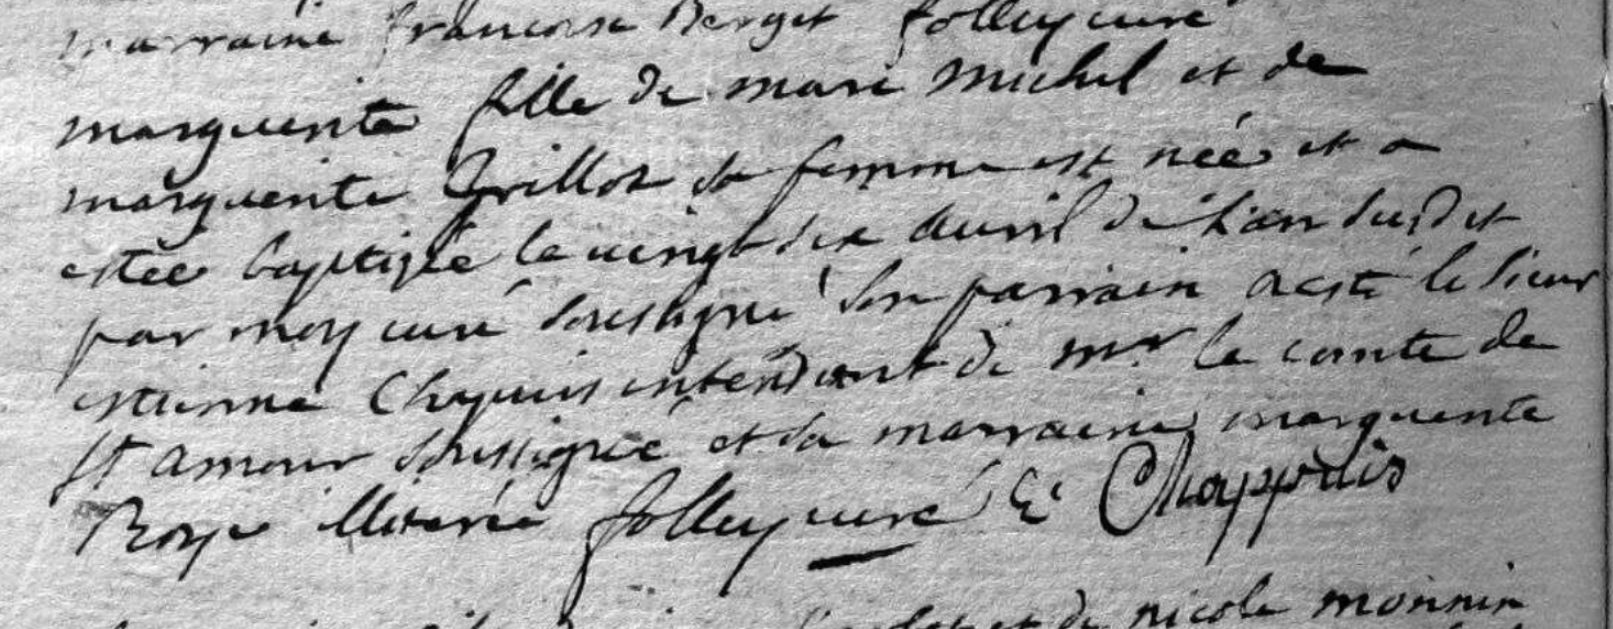 marraine francoise Berget folley curé
marguerite fille de marc michel et de
marguerite Grillot sa femme est née et a
estée baptizée le vingt six auvril de l'an susdit
par moy curé soussigné son parrain a esté le sieur
estienne Chapuis intendant de mr le comte de
st amour soussigné et sa marraine marguerite
Roye illiterée folley curé E Chappuis
et de nicole monnin